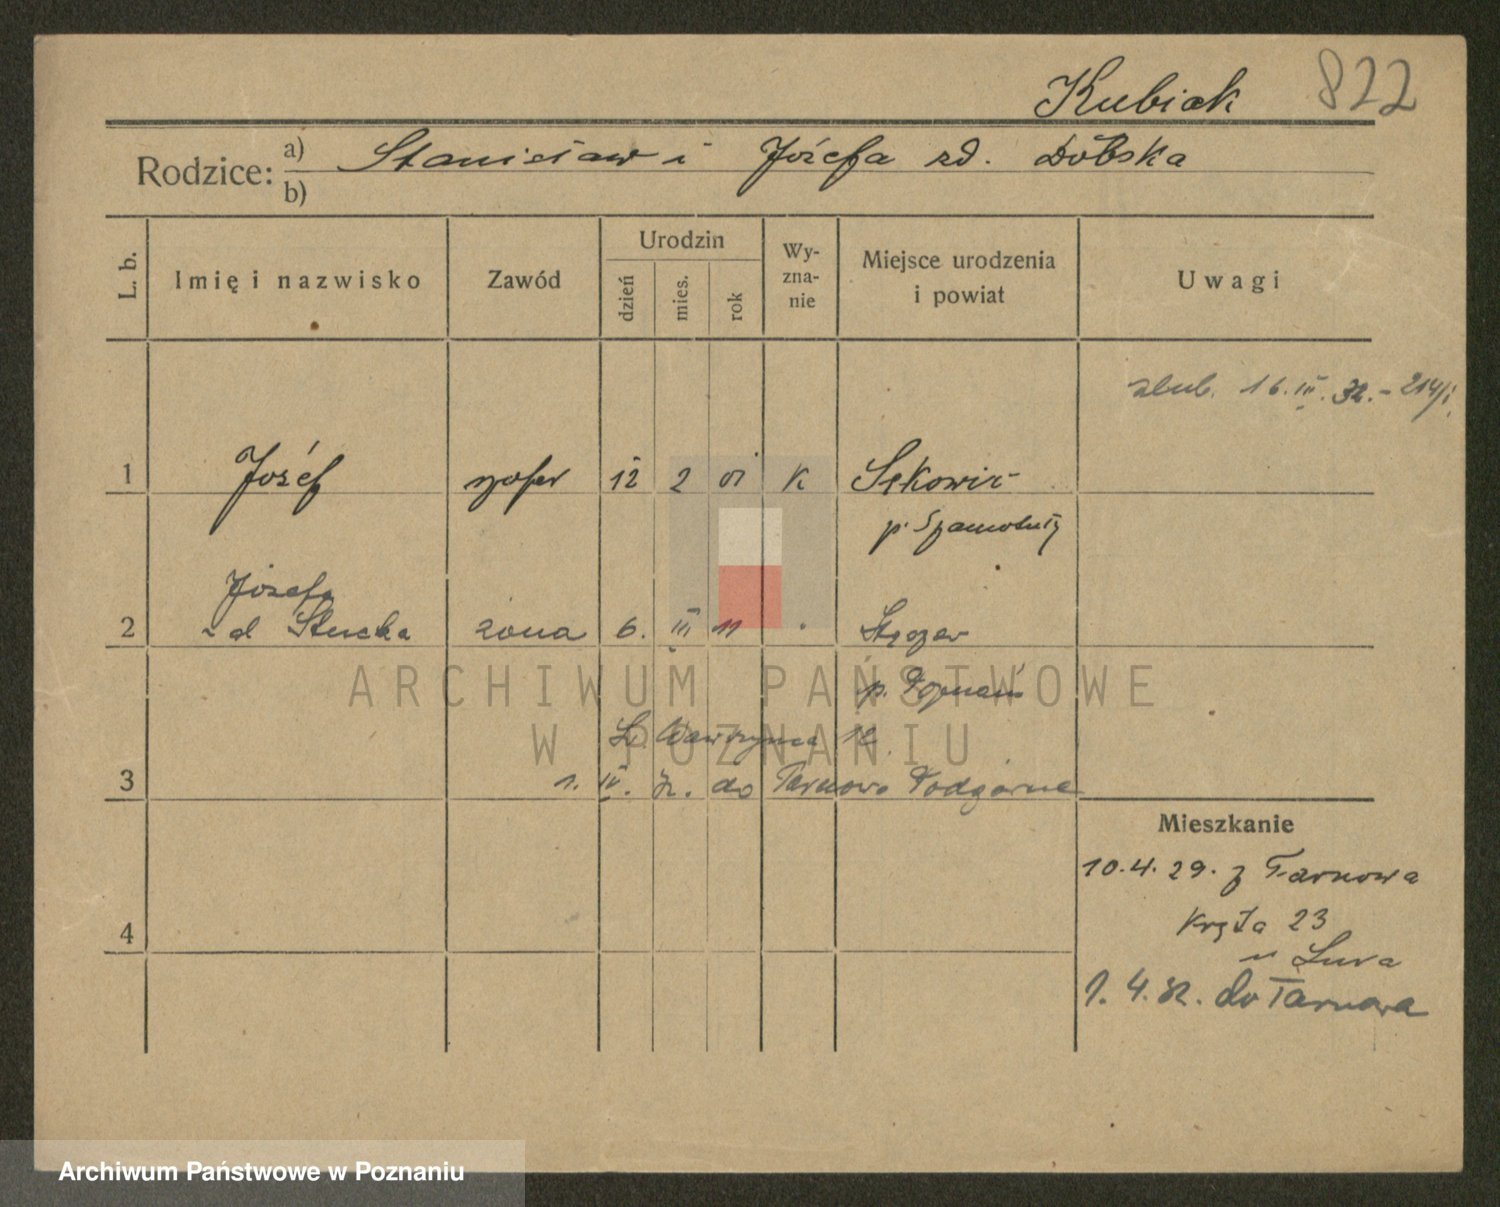 Kubiak 822
Rodzice: a) Stanisław i Józefa zd. Dobska
b)
L. b. Imię i nazwisko Zawód Urodzin dzień mies. rok Wy-zna-nie Miejsce urodzenia i powiat Uwagi
ślub. 16.III.32.- 214/
1 Józef szofer 12 2 01 k Sękowi
p. Szamotuły
Józefa
2 zd żona 6. III 11
p. Poznań
Wawrzyńca 12
3 1. IV. 32. do Tarnowo Podgórne
Mieszkanie
10.4.29. z Tarnowa
Kręta 23
4
u
1.4.32. do Tarnowa
ARCHIWUM PAŃSTWOWE
W POZNANIU
Archiwum Państwowe w Poznaniu